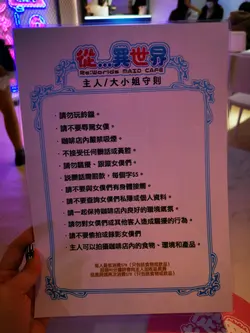 從...異世界
Re:Worlds MAID CAFE
主人/大小姐守則
· 請勿玩鈴鐘。
· 請不要辱罵女僕。
· 咖啡店內嚴禁吸煙。
· 不接受任何髒話或黃腔。
· 請勿騷擾、跟蹤女僕們。
· 請不要與女僕們有身體接觸。
· 請不要查詢女僕們私隱或個人資料。
· 請一起保持咖啡店內良好的環境氣氛。
· 請勿對女僕們或其他客人造成騷擾的行為。
· 請不要偷拍或錄影女僕們
· 主人可以拍攝咖啡店內的食物、環境和產品。